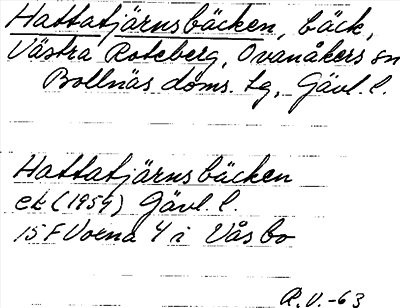 Hattatjärnsbäcken, bäck,
Västra Roteberg, Ovanåkers sn
Bollnäs doms. tg, Gävl. l.
Hattatjärnsbäcken
ek (1959) Gävl. l.
15 F Voxna 4 i Våsbo
R.V.-63